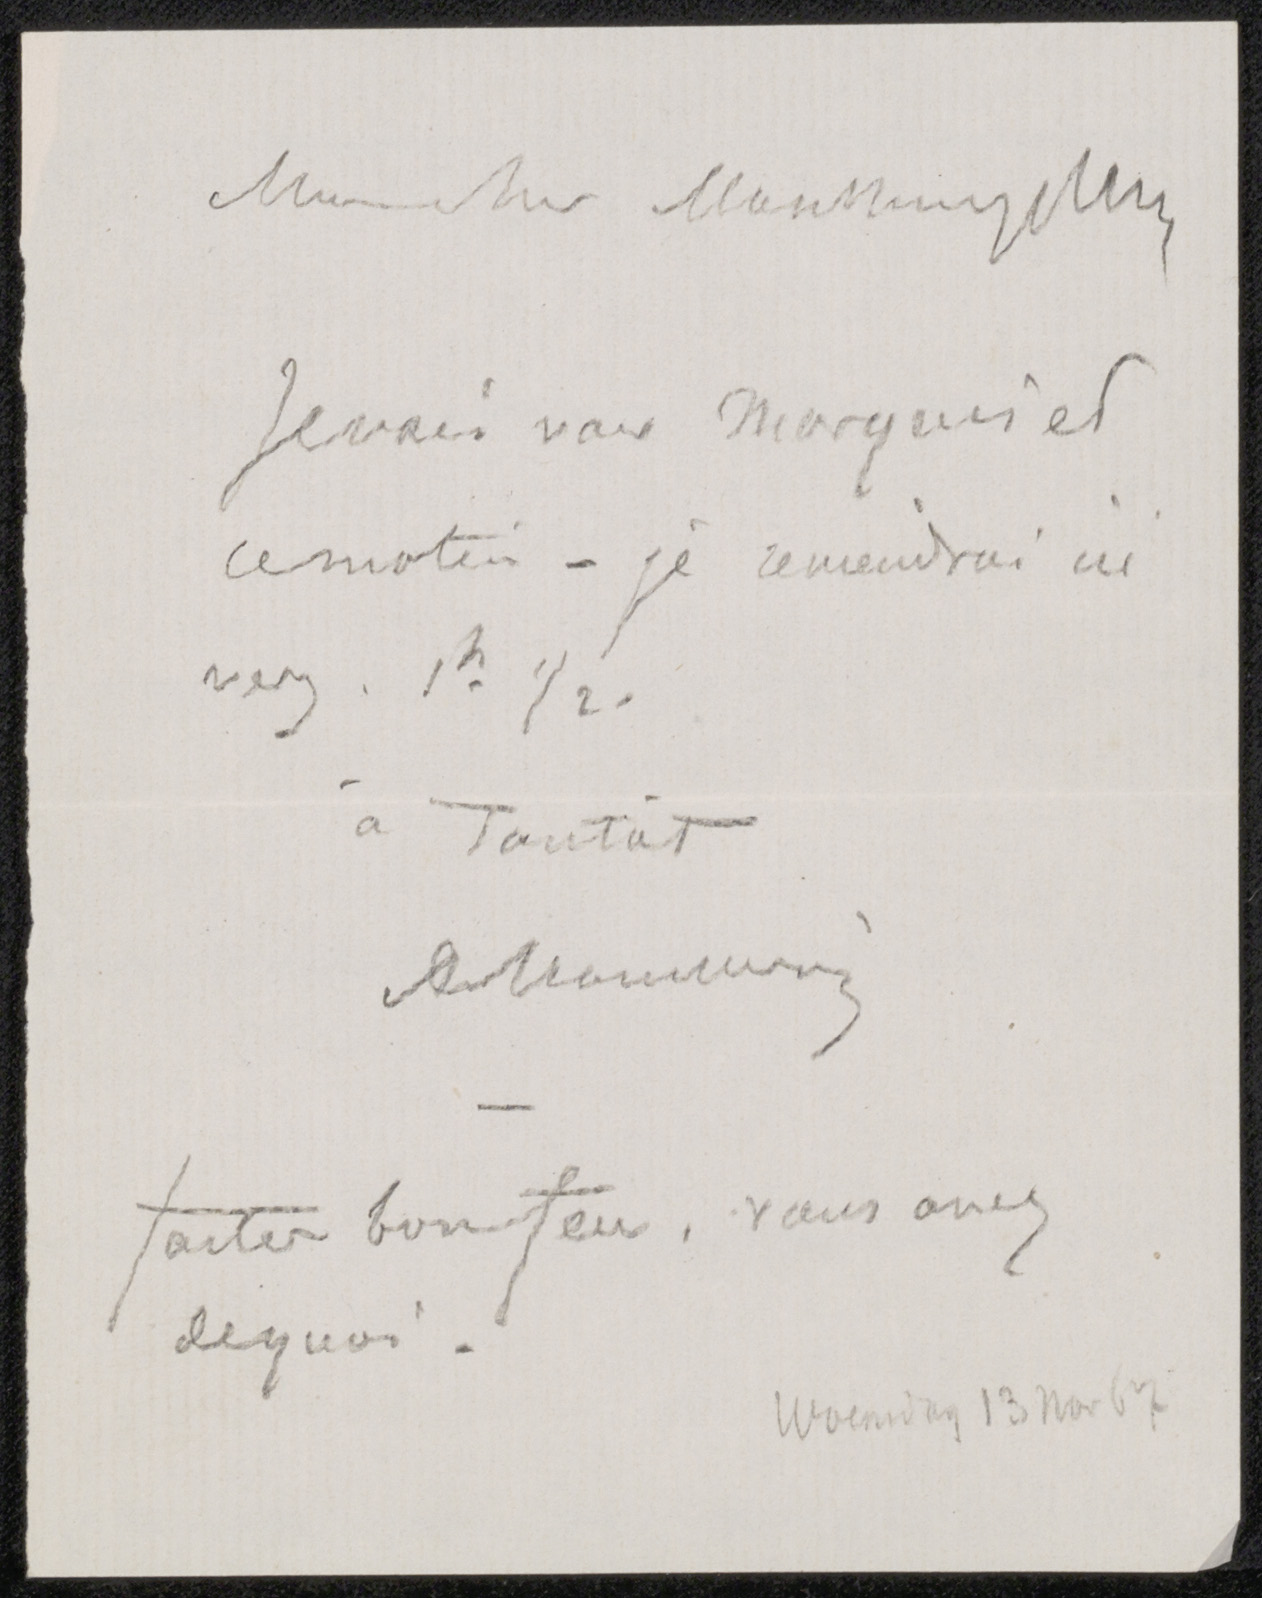 Mon cher
Je vais voir Marquis et
ce matin - je reviendrai ici
verz. 1h. 1/2.
à Tantôt
A. Mauve
faites bon feu, vous avez
de quoi.
Woensdag 13 Nov 67